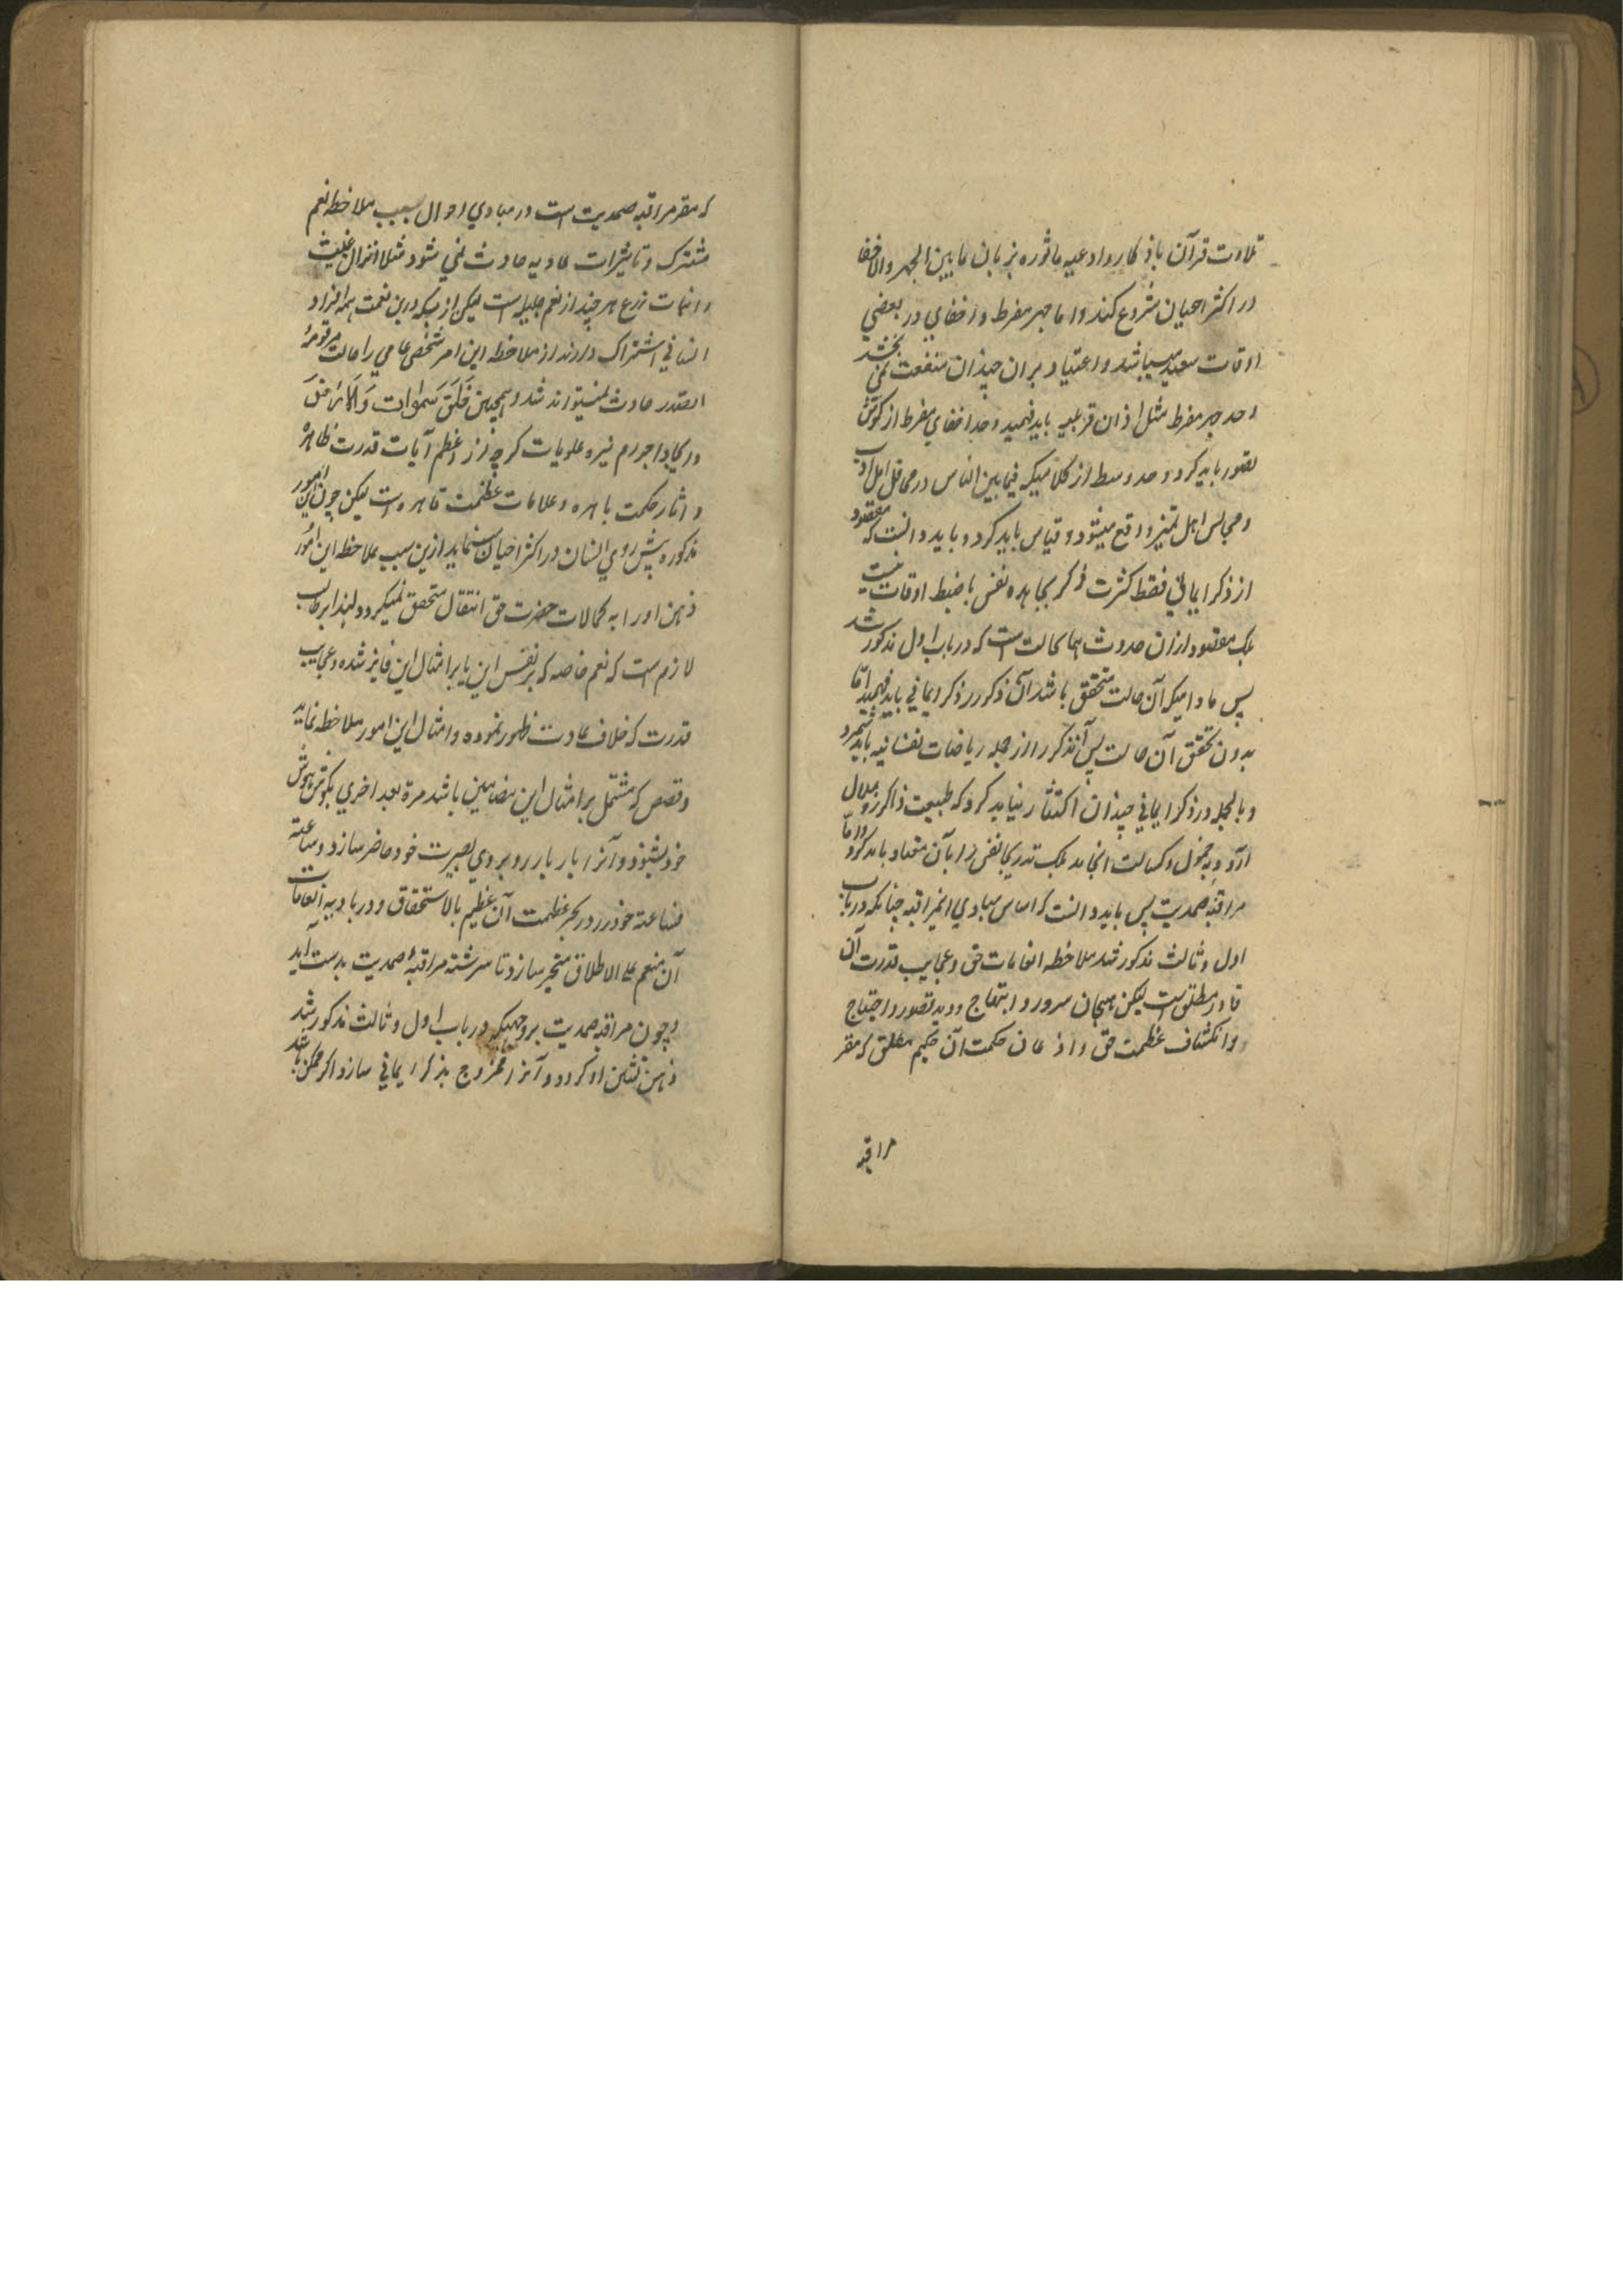 تلاوت قرآن با ذکار و ادعیه ماثوره بزبان ما بین الجهر والاخفا
در اکثر احیان شروع کند و اما جهر مفرط و اخفای در بعضی
اوقات سعید میباشد و اعتیاد بران چندان منفعت نمی بخشد
و حد جهر مفرط مثل اذان باید فهمید و حد اخفای مفرط از گوش
تصور باید کرد و حد وسط از کلامیکه فیما بین الناس در محافل اهل ادب
و مجالس اهل تمیز واقع میشود قیاس باید کرد و باید دانست که مقصود
از ذکر ایمانی فقط کثرت ذکر مجاهده نفس با ضبط اوقات نیست
بلکه مقصود ازان حدوث همان حالت است که در باب اول مذکور شد
پس مادامیکه آن حالت متحقق باشد آن ذکر را ذکر ایمانی باید فهمید اما
بدون تحقق آن حالت پس آنذکر را از جمله ریاضات نفسانیه باید شمرد
و بالجمله در ذکر ایمانی چندان اکتثار نباید کرد که طبیعت ذاکر رو بملال
آرد و بخمول و کسالت انجامد بلکه تدریجا نفس را بآن معتاد باید کرد و اما
مراقبه صمدیت پس باید دانست که اساس مبادی اینمراقبه چنانکه در باب
اول و ثالث مذکور شد ملاحظه انعامات حق و عجایب قدرت آن
قادر مطلق است لیکن هیجان سرور و ابتهاج و دید تصور و احتیاج
و انکشاف عظمت حق و اذعان حکمت آن حکیم مطلق که مقر
مراقبه
که مقر مراقبه صمدیت است در مبادی احوال بسبب ملاحظه نعم
مشترک و تاثیرات عادیه حادث نمی شود مثلا انزال غیث
و انبات زرع هر چند از نعم جلیله است لیکن از بسکه درین نعمت همه افراد
انسانی اشتراک دارند از ملاحظه این امر شخص عامی را حالت مرقومة
الصدر حادث نمیتواند شد و همچنین خلق سموات والارض
و ایجاد اجرام نیره علویات گرچه از اعظم آیات قدرت ظاهره
و اثار حکمت باهره و علامات عظمت قاهره است لیکن چون این امور
مذکوره پیش روی انسان در اکثر احیان مینماید ازین سبب بملاحظه این امور
ذهن او را به کمالات حضرت حق انتقال متحقق نمیگردد لهذا بر طالب
لازم است که نعم خاصه که بر نفس این یا بر امثال این فایز شده و عجایب
قدرت که خلاف عادت ظهور نموده و امثال این امور ملاحظه نماید
و قصص که مشتمل بر امثال این مضامین باشد مرة بعد اخری بگوش هوش
خود بشنود و آنرا بار بار روبروی بصیرت خود حاضر سازد و ساعة
فساعة خود را در بحر عظمت آن عظیم بالاستحقاق و در بادیه انعامات
آن منعم علی الاطلاق متحیر سازد تا سر رشته مراقبه صمدیت بدست آید
و چون مراقبه صمدیت بر وجهیکه در باب اول و ثالث مذکور شد
ذهن نشین او گردد و آنرا ممزوج بذکر ایمانی سازد اگر ممکن باشد